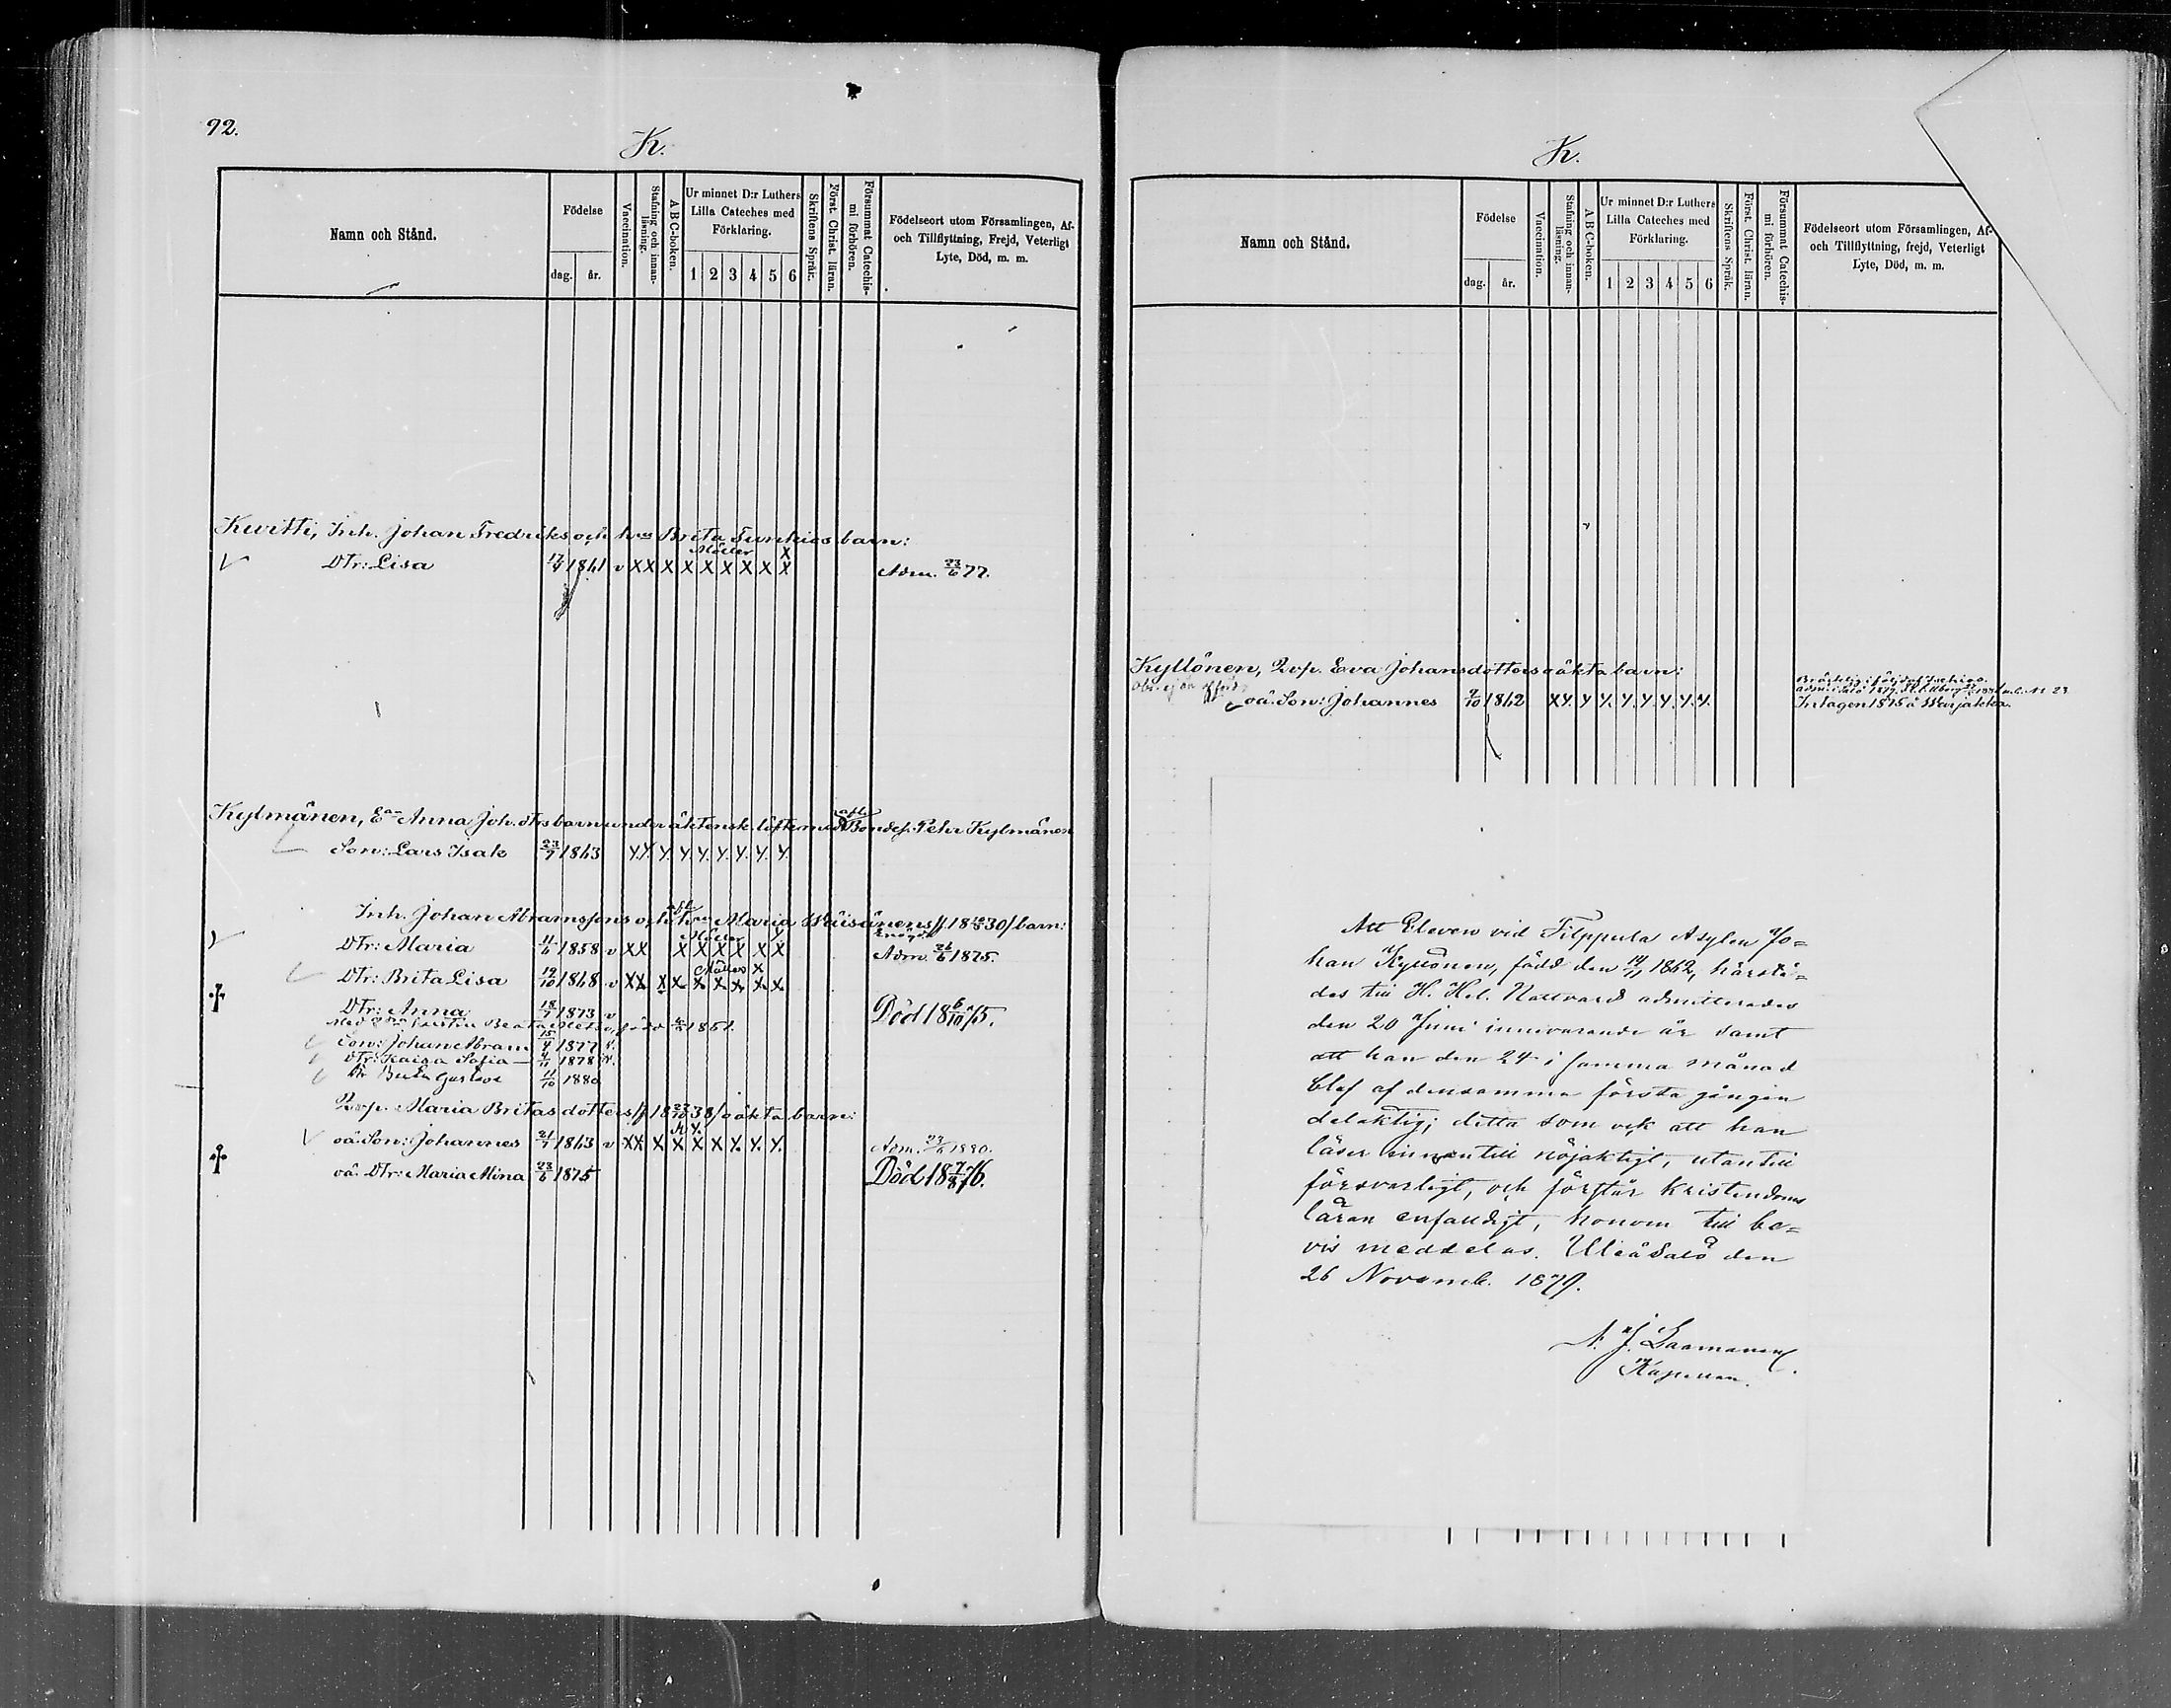 92.
K.
Namn och Stånd.
Födelse
dag. år.
Vaccination.
Stafning och innan-läsning.
A B C-boken.
Ur minnet D:r Luthers Lilla Cateches med Förklaring.
1 2 3 4 5 6
Skriftens Språk.
Först. Christ. läran.
Försummat Catechis-mi förhören.
Födelseort utom Församlingen, Af- och Tillflyttning, Frejd, Veterligt Lyte, Död, m. m.
Kuitti, Inh. Johan Fredriks och hus Brita barn:
Dtr: Lisa 17/4 1861 v X X X X X X X X X Adm. 23/6 77.
Kylmänen, Ea Anna Joh. dtrs barn under äktensk. löfte med afl. Bondes. Pehr Kylmänen
Son: Lars Isak 23/7 1863 Y. Y. Y. Y. Y. Y. Y. Y. Y.
Inh. Johan Abramssons och afl. hus Maria barn:
Dtr: Maria 11/6 1858 v X X X X X X X X Adm. 21/6 1875.
Dtr: Brita Lisa 19/10 1868 v X X X X X X X X X
Dtr: Anna 18/7 1873 v Död 18 6/10 75.
Son: Johan Abram 15/4 1877 v.
Dtr: Kaisa Sofia 4/11 1878 v.
Dtr Gustava 11/10 1880
Maria Britasdotters /f. 18 38/ oäkta barn:
oä. Son: Johannes 21/7 1863 v X X X X X X X Y. Y. Y. Adm. 23/6 1880.
oä. Dtr: Maria Mina 23/6 1875 Död 18 7/8 76.
K.
Namn och Stånd.
Födelse
dag. år.
Vaccination.
Stafning och innan-läsning.
A B C-boken.
Ur minnet D:r Luthers Lilla Cateches med Förklaring.
1 2 3 4 5 6
Skriftens Språk.
Först. Christ. läran.
Försummat Catechis-mi förhören.
Födelseort utom Församlingen, Af- och Tillflyttning, frejd, Veterligt Lyte, Död, m. m.
Kyllönen, Eva Johansdotters oäkta barn:
oä. Son: Johannes 9/10 1862 X Y. Y Y. Y. Y. Y. Y. Y. Intagen 1875 å
Att Eleven vid Filppula Asylen Jo=
han Kyllönen, född den 14/1 1862, härstä=
des till H. Hel. Nattvard admitterades
den 20 Juni innevarande år samt
att han den 24 i samma månad
blef af densamma första gången
delaktig; detta som ock att han
läser innantill nöjaktigt, utantill
försvarligt, och förstår kristendoms
läran enfaldigt, honom till be=
vis meddelas. Uleåsalo den
26 Novemb. 1879.
A. J. Saamanen
Kapellan.